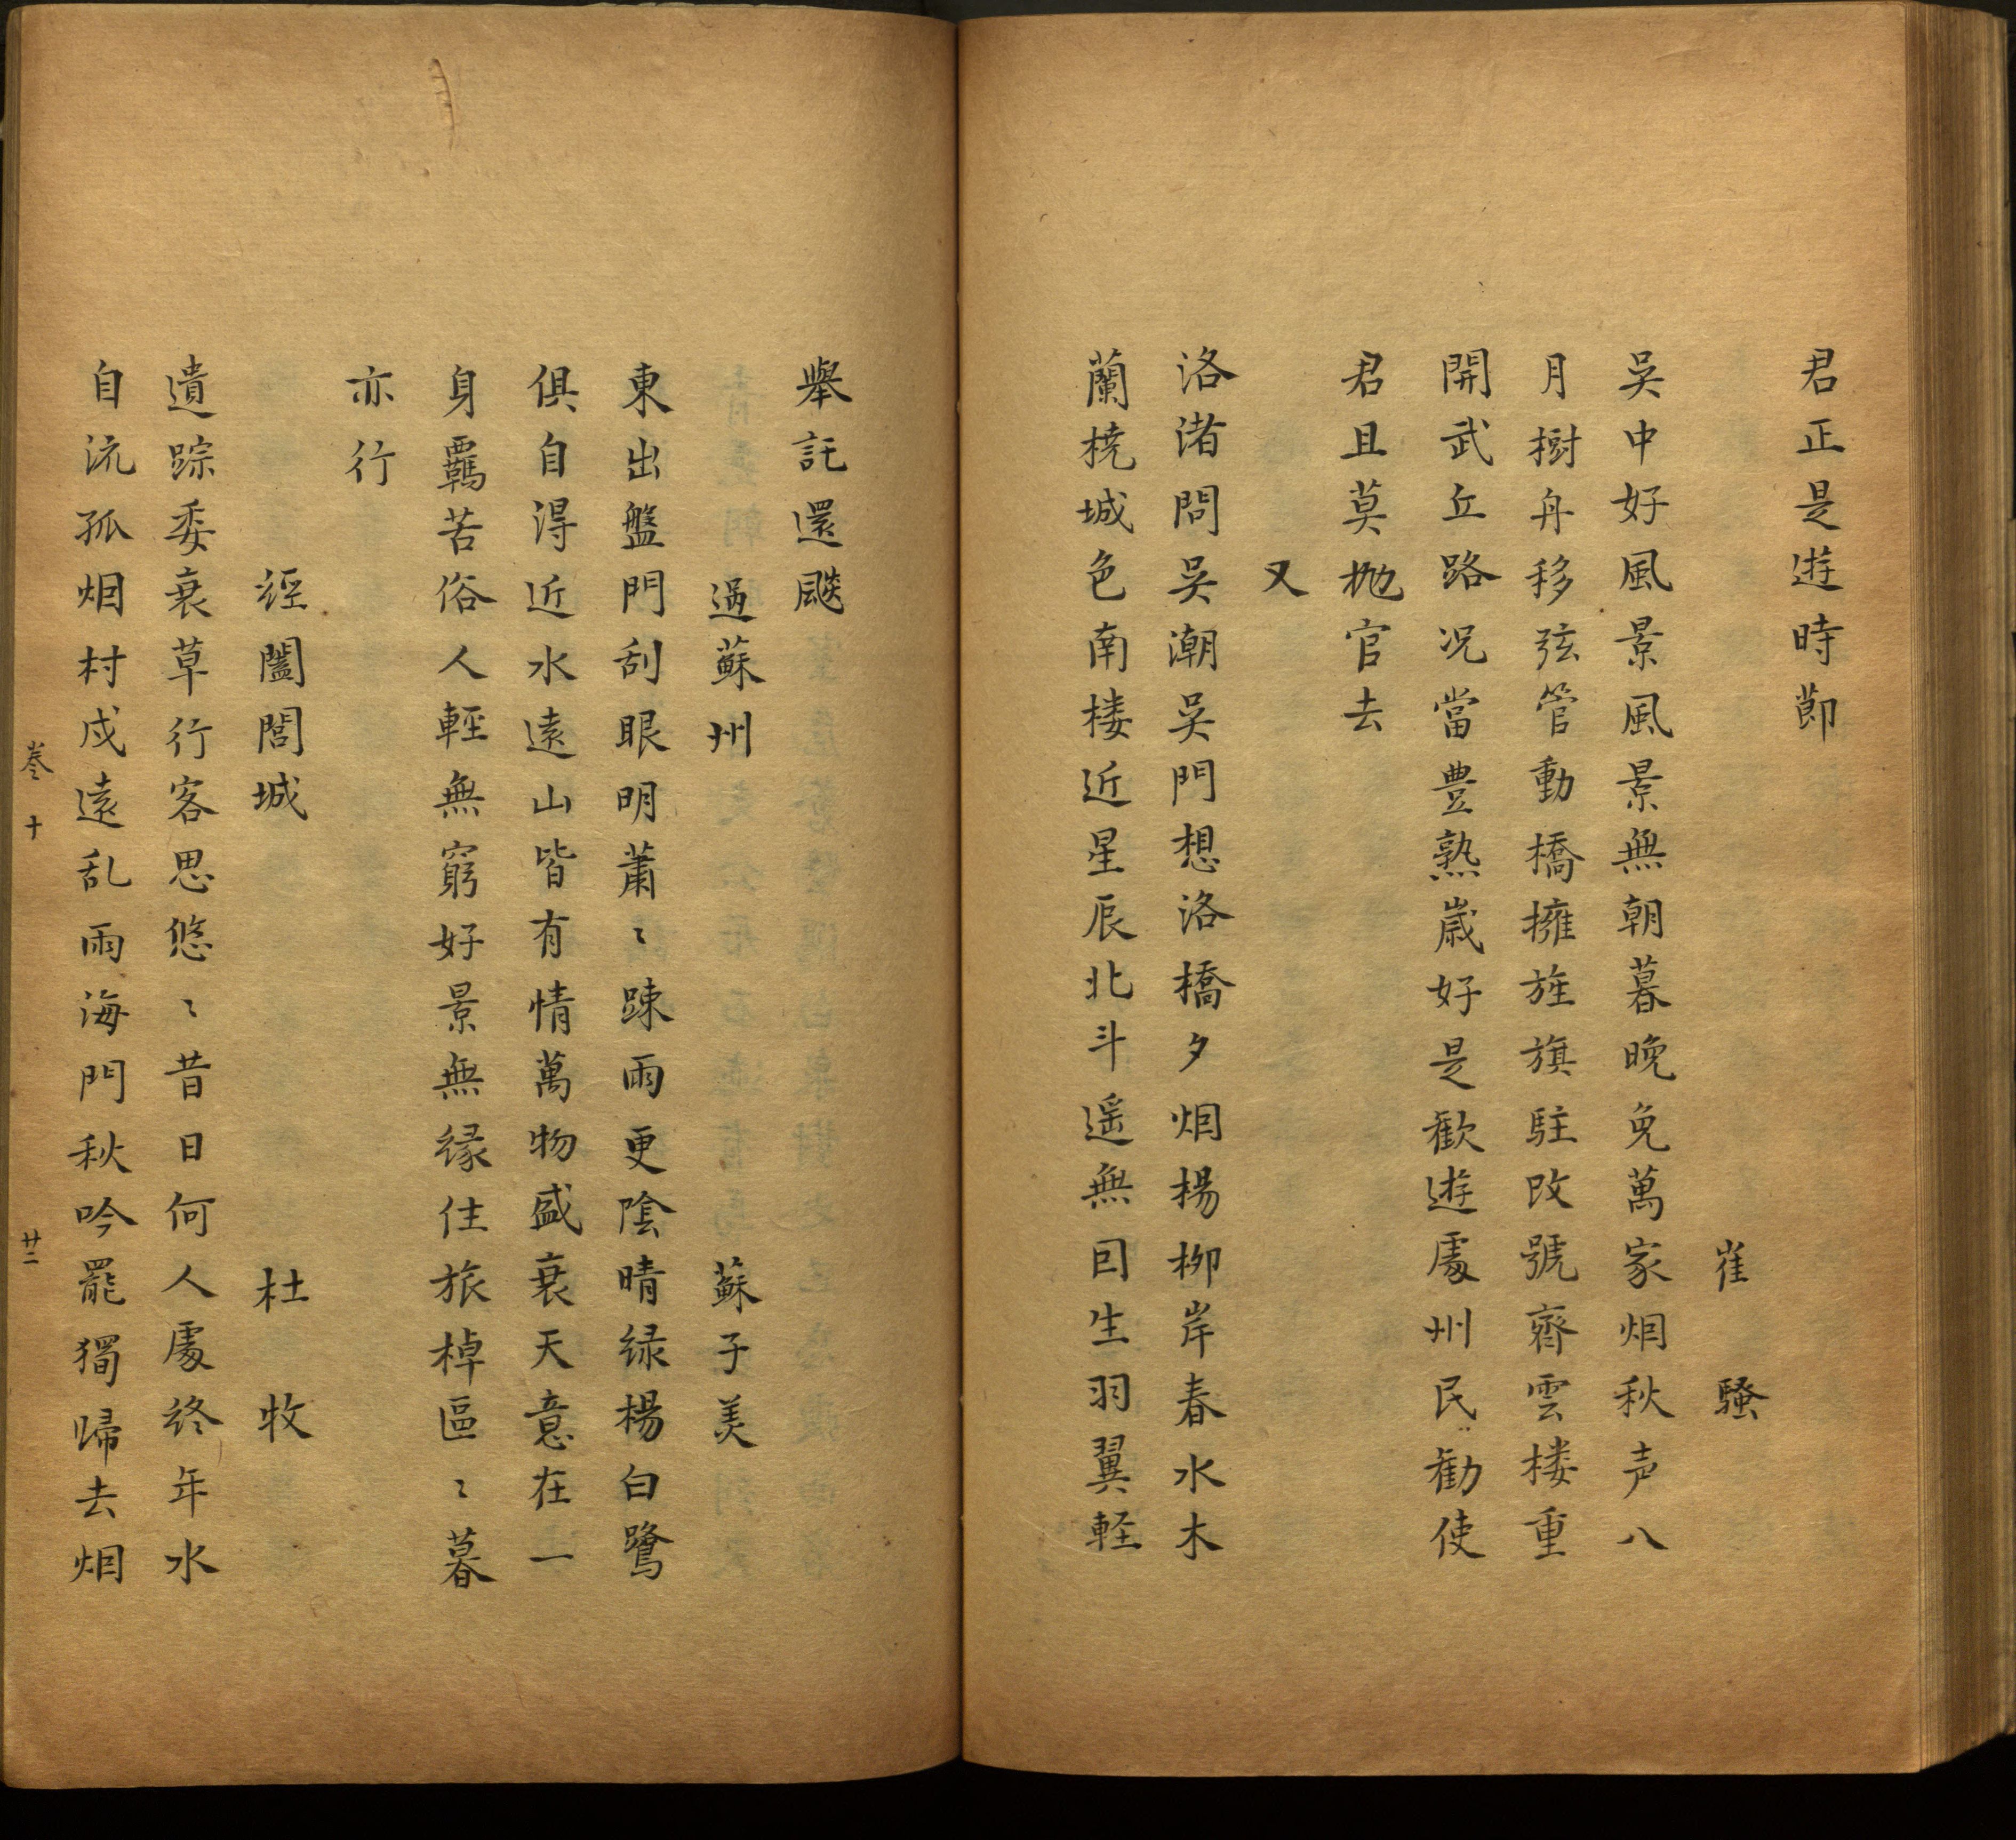 君正是遊時節
崔騷
吳中好風景風景無朝暮晚免萬家烟秋声八
月樹舟移弦管動橋擁旌旗駐改號齊雲楼重
開武丘路况當豊熟歳好是歡遊䖏州民勸使
君且莫抛官去
又
洛渚問吳潮吳門想洛橋夕烟楊柳岸春水木
蘭桡城色南楼近星辰北斗遥無囙生羽翼軽
舉託還飇
過蘇州 蘇子美
東出盤門刮眼明蕭〻踈雨更陰晴緑楊白鷺
俱自淂近水逺山皆有情萬物盛衰天意在一
身羈苦俗人輕無窮好景無縁住旅棹區〻暮
亦行
經闔閭城 杜牧
遺踪委衰草行客思悠〻昔日何人䖏終年水
自流孤烟村戍逺乱雨海門秋吟罷獨歸去烟
巻十 廿二